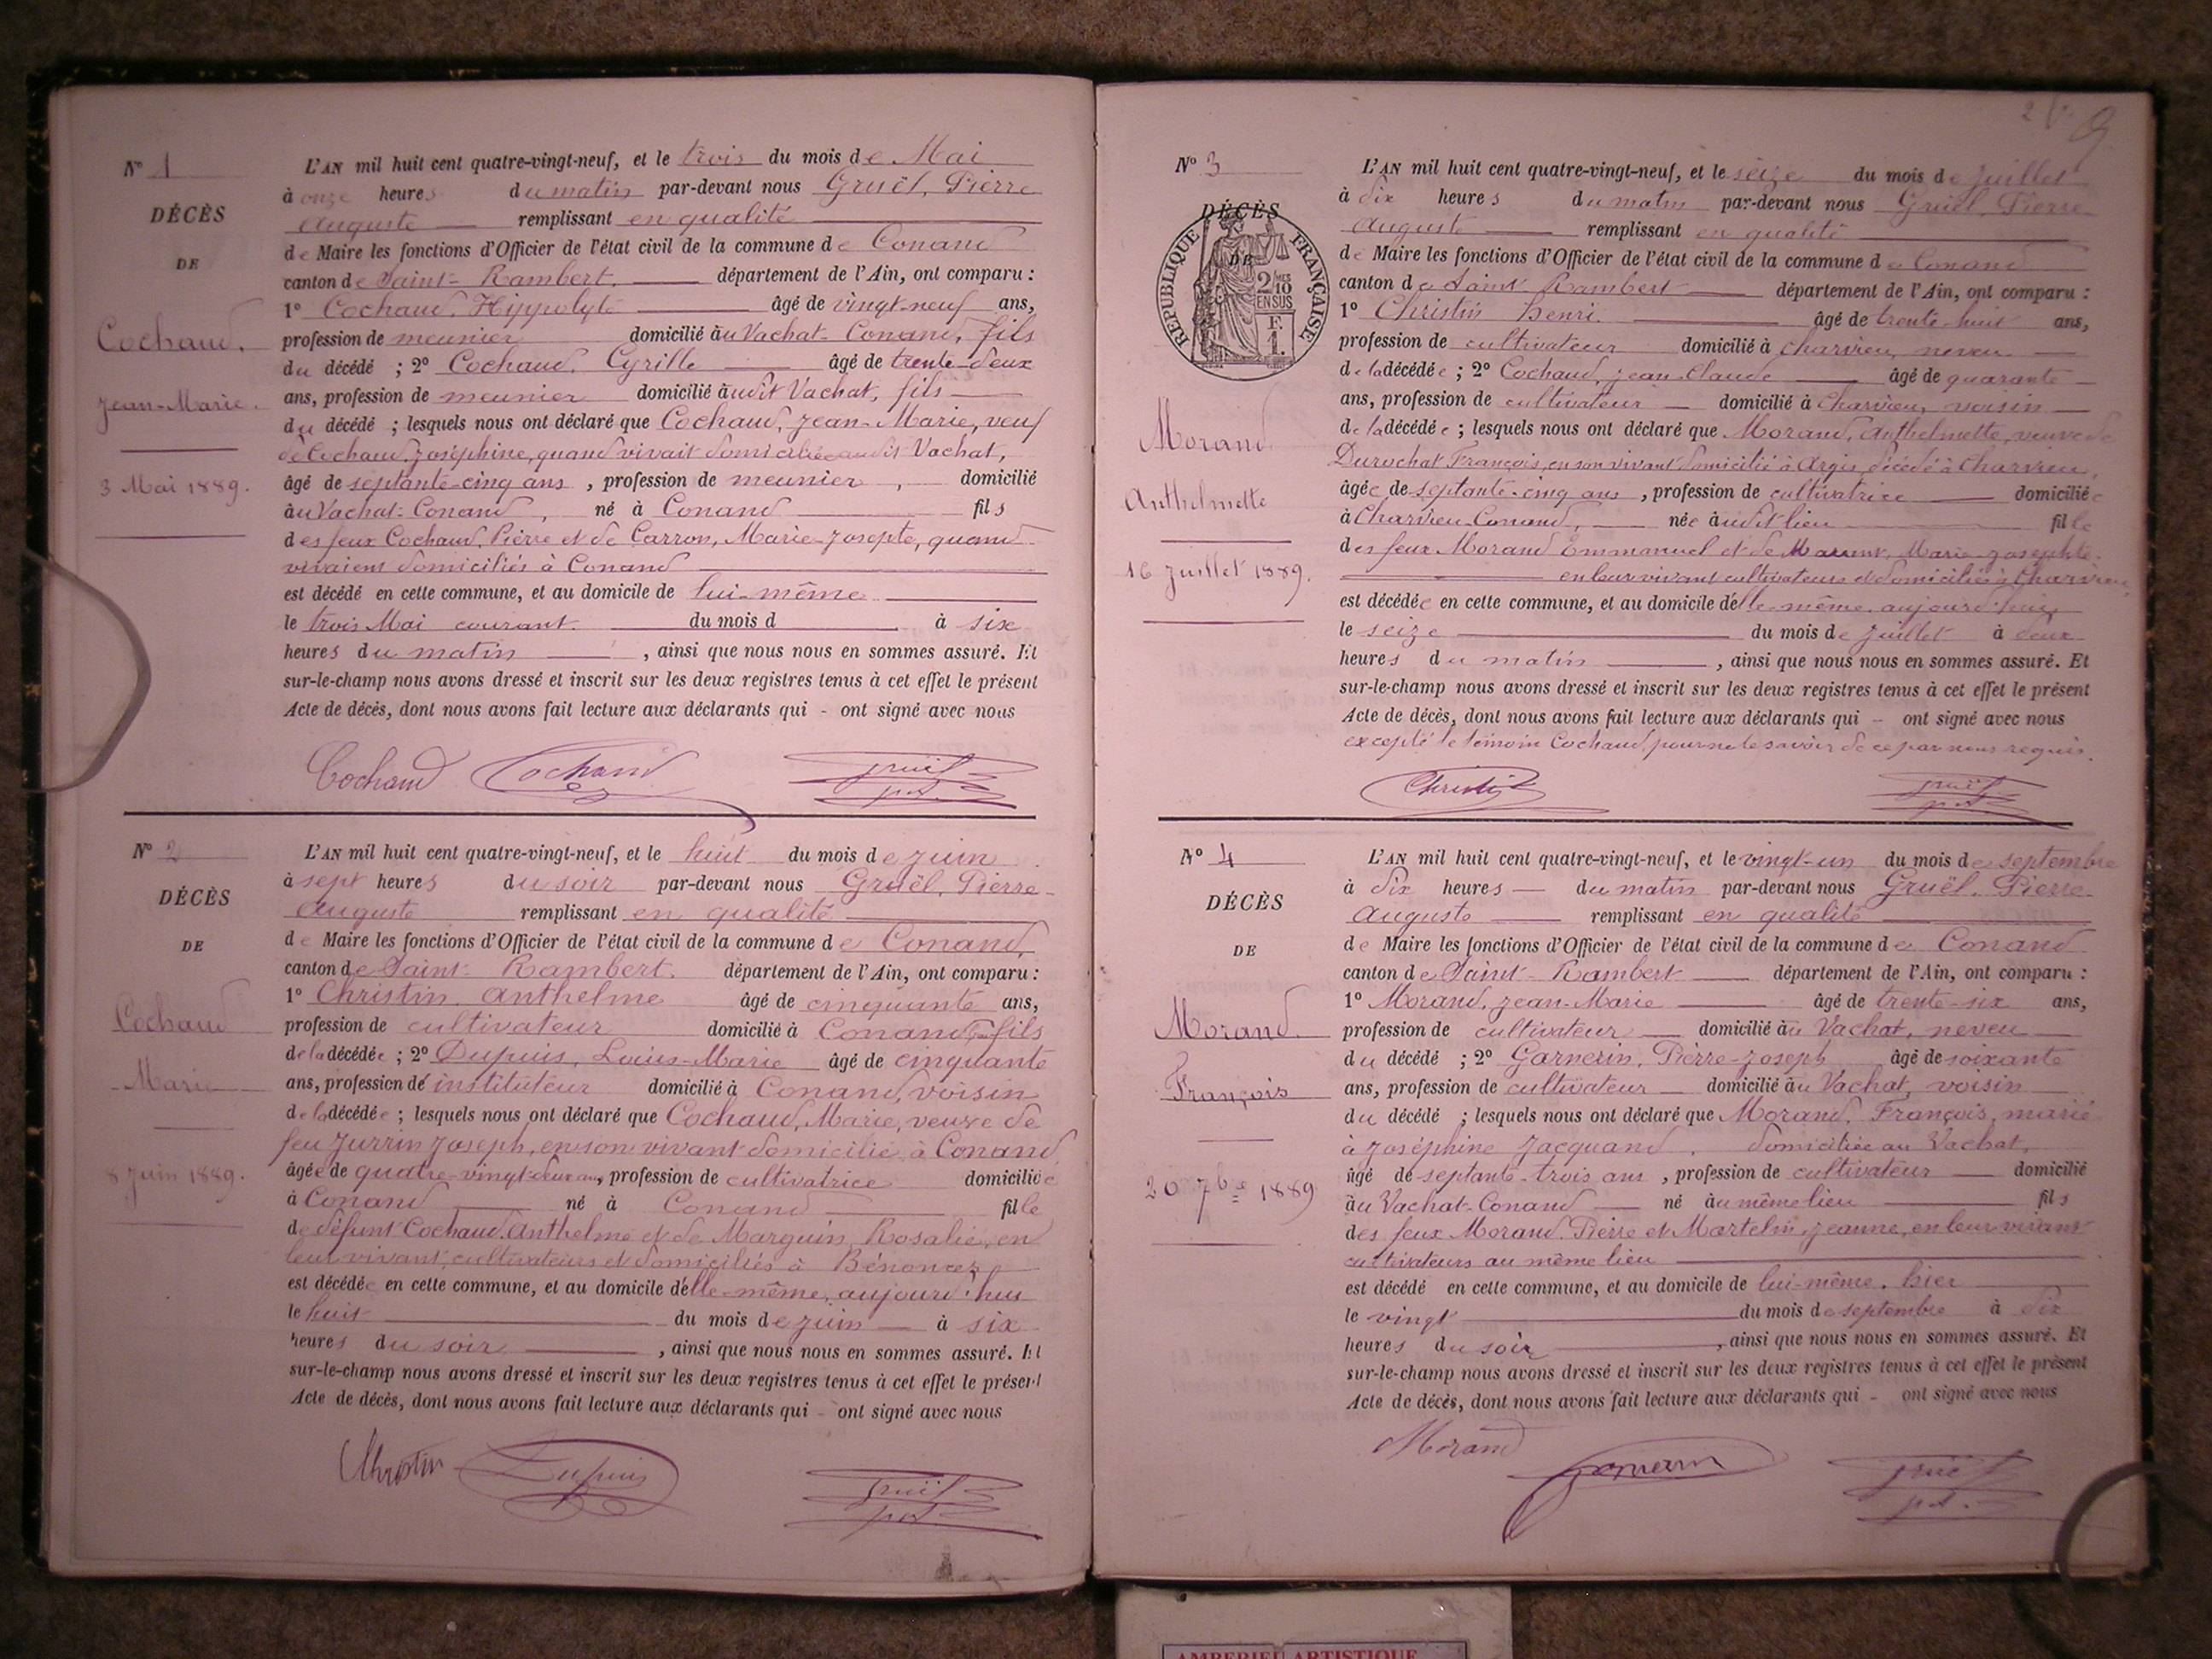 N° 1
DÉCÈS
DE
Cochaud,
Jean-Marie.
3 Mai 1889.
L'AN mil huit cent quatre-vingt-neuf, et le trois du mois de Mai
à onze heures du matin par-devant nous Gruël, Pierre
Auguste remplissant en qualité
de Maire les fonctions d'Officier de l'état civil de la commune de Conand
canton de Saint-Rambert. département de l'Ain, ont comparu :
1° Cochaud, Hippolyte âgé de vingt-neuf ans,
profession de meunier domicilié au Vachat-Conand, fils
du décédé ; 2° Cochaud, Cyrille âgé de trente-deux
ans, profession de meunier domicilié audit Vachat, fils
du décédé ; lesquels nous ont déclaré que Cochaud, Jean-Marie, veuf
de Cochaud, Joséphine, quand vivait domiciliée audit Vachat,
âgé de septante-cinq ans , profession de meunier , domicilié
au Vachat-Conand , né à Conand fils
des feux Cochaud, Pierre et de Carron, Marie-Josepte, quand
vivaient domiciliés à Conand
est décédé en cette commune, et au domicile de lui-même
le trois Mai courant. du mois d à six
heures du matin , ainsi que nous nous en sommes assuré. Et
sur-le-champ nous avons dressé et inscrit sur les deux registres tenus à cet effet le présent
Acte de décès, dont nous avons fait lecture aux déclarants qui - ont signé avec nous
Cochaud Cochaud Gruël
N° 2
DÉCÈS
DE
Cochaud
Marie
8 Juin 1889.
L'AN mil huit cent quatre-vingt-neuf, et le huit du mois de Juin
à sept heures du soir par-devant nous Gruël, Pierre-
Auguste remplissant en qualité
de Maire les fonctions d'Officier de l'état civil de la commune de Conand,
canton de Saint-Rambert. département de l'Ain, ont comparu :
1° Christin, Anthelme âgé de cinquante ans,
profession de cultivateur domicilié à Conand, fils
de la décédée ; 2° Dupuis, Louis-Marie âgé de cinquante
ans, profession de instituteur domicilié à Conand, voisin
de la décédée ; lesquels nous ont déclaré que Cochaud, Marie, veuve de
feu Jurrin Joseph, en son vivant domicilié à Conand
âgée de quatre-vingt-deux ans, profession de cultivatrice domiciliée
à Conand né à Conand fille
de défunt Cochaud, Anthelme et de Marguin, Rosalie, en
leur vivant, cultivateurs et domiciliés à Bénoncez
est décédée en cette commune, et au domicile d'elle-même, aujourd'hui
le huit du mois de Juin à six
heures du soir , ainsi que nous nous en sommes assuré. Et
sur-le-champ nous avons dressé et inscrit sur les deux registres tenus à cet effet le présent
Acte de décès, dont nous avons fait lecture aux déclarants qui - ont signé avec nous
Christin Dupuis Gruël
N° 3
DÉCÈS
DE
RÉPUBLIQUE FRANÇAISE
2/10 EN SUS
F. 1.
Morand
Anthelmette
16 Juillet 1889.
L'AN mil huit cent quatre-vingt-neuf, et le seize du mois de Juillet
à dix heures du matin par-devant nous Gruël, Pierre
Auguste remplissant en qualité
de Maire les fonctions d'Officier de l'état civil de la commune de Conand
canton de Saint Rambert département de l'Ain, ont comparu :
1° Christin Henri. âgé de trente-huit ans,
profession de cultivateur domicilié à Charvieu, neveu
de la décédée ; 2° Cochaud, Jean-Claude âgé de quarante
ans, profession de cultivateur domicilié à Charvieu, voisin
de la décédée ; lesquels nous ont déclaré que Morand, Anthelmette, veuve de
Durochat François, en son vivant domicilié à Argis, décédé à Charvieu,
âgée de septante-cinq ans , profession de cultivatrice domiciliée
à Charvieu-Conand, née audit lieu fille
des feux Morand Emmanuel et de Marie-Josephte
en leur vivant cultivateurs et domiciliés à Charvieu
est décédée en cette commune, et au domicile d'elle-même, aujourd'hui
le seize du mois de Juillet à deux
heures du matin , ainsi que nous nous en sommes assuré. Et
sur-le-champ nous avons dressé et inscrit sur les deux registres tenus à cet effet le présent
Acte de décès, dont nous avons fait lecture aux déclarants qui - ont signé avec nous
excepté le témoin Cochaud, pour ne le savoir de ce par nous requis.
Christin Gruël
N° 4
DÉCÈS
DE
Morand.
François
20 7bre 1889
L'AN mil huit cent quatre-vingt-neuf, et le vingt-un du mois de septembre
à dix heures du matin par-devant nous Gruël, Pierre
Auguste remplissant en qualité
de Maire les fonctions d'Officier de l'état civil de la commune de Conand
canton de Saint-Rambert département de l'Ain, ont comparu :
1° Morand, Jean-Marie âgé de trente-six ans,
profession de cultivateur domicilié au Vachat, neveu
du décédé ; 2° Garnerin, Pierre-Joseph âgé de soixante
ans, profession de cultivateur domicilié au Vachat, voisin
du décédé ; lesquels nous ont déclaré que Morand, François, marié
à Joséphine Jacquand, domiciliée au Vachat,
âgé de septante-trois ans , profession de cultivateur domicilié
au Vachat-Conand né au même lieu fils
des feux Morand, Pierre et Martelin Jeanne, en leur vivant
cultivateurs au même lieu
est décédé en cette commune, et au domicile de lui-même, hier
le vingt du mois de septembre à dix
heures du soir , ainsi que nous nous en sommes assuré. Et
sur-le-champ nous avons dressé et inscrit sur les deux registres tenus à cet effet le présent
Acte de décès, dont nous avons fait lecture aux déclarants qui - ont signé avec nous
Morand Garnerin Gruël
AMBERIEU ARTISTIQUE